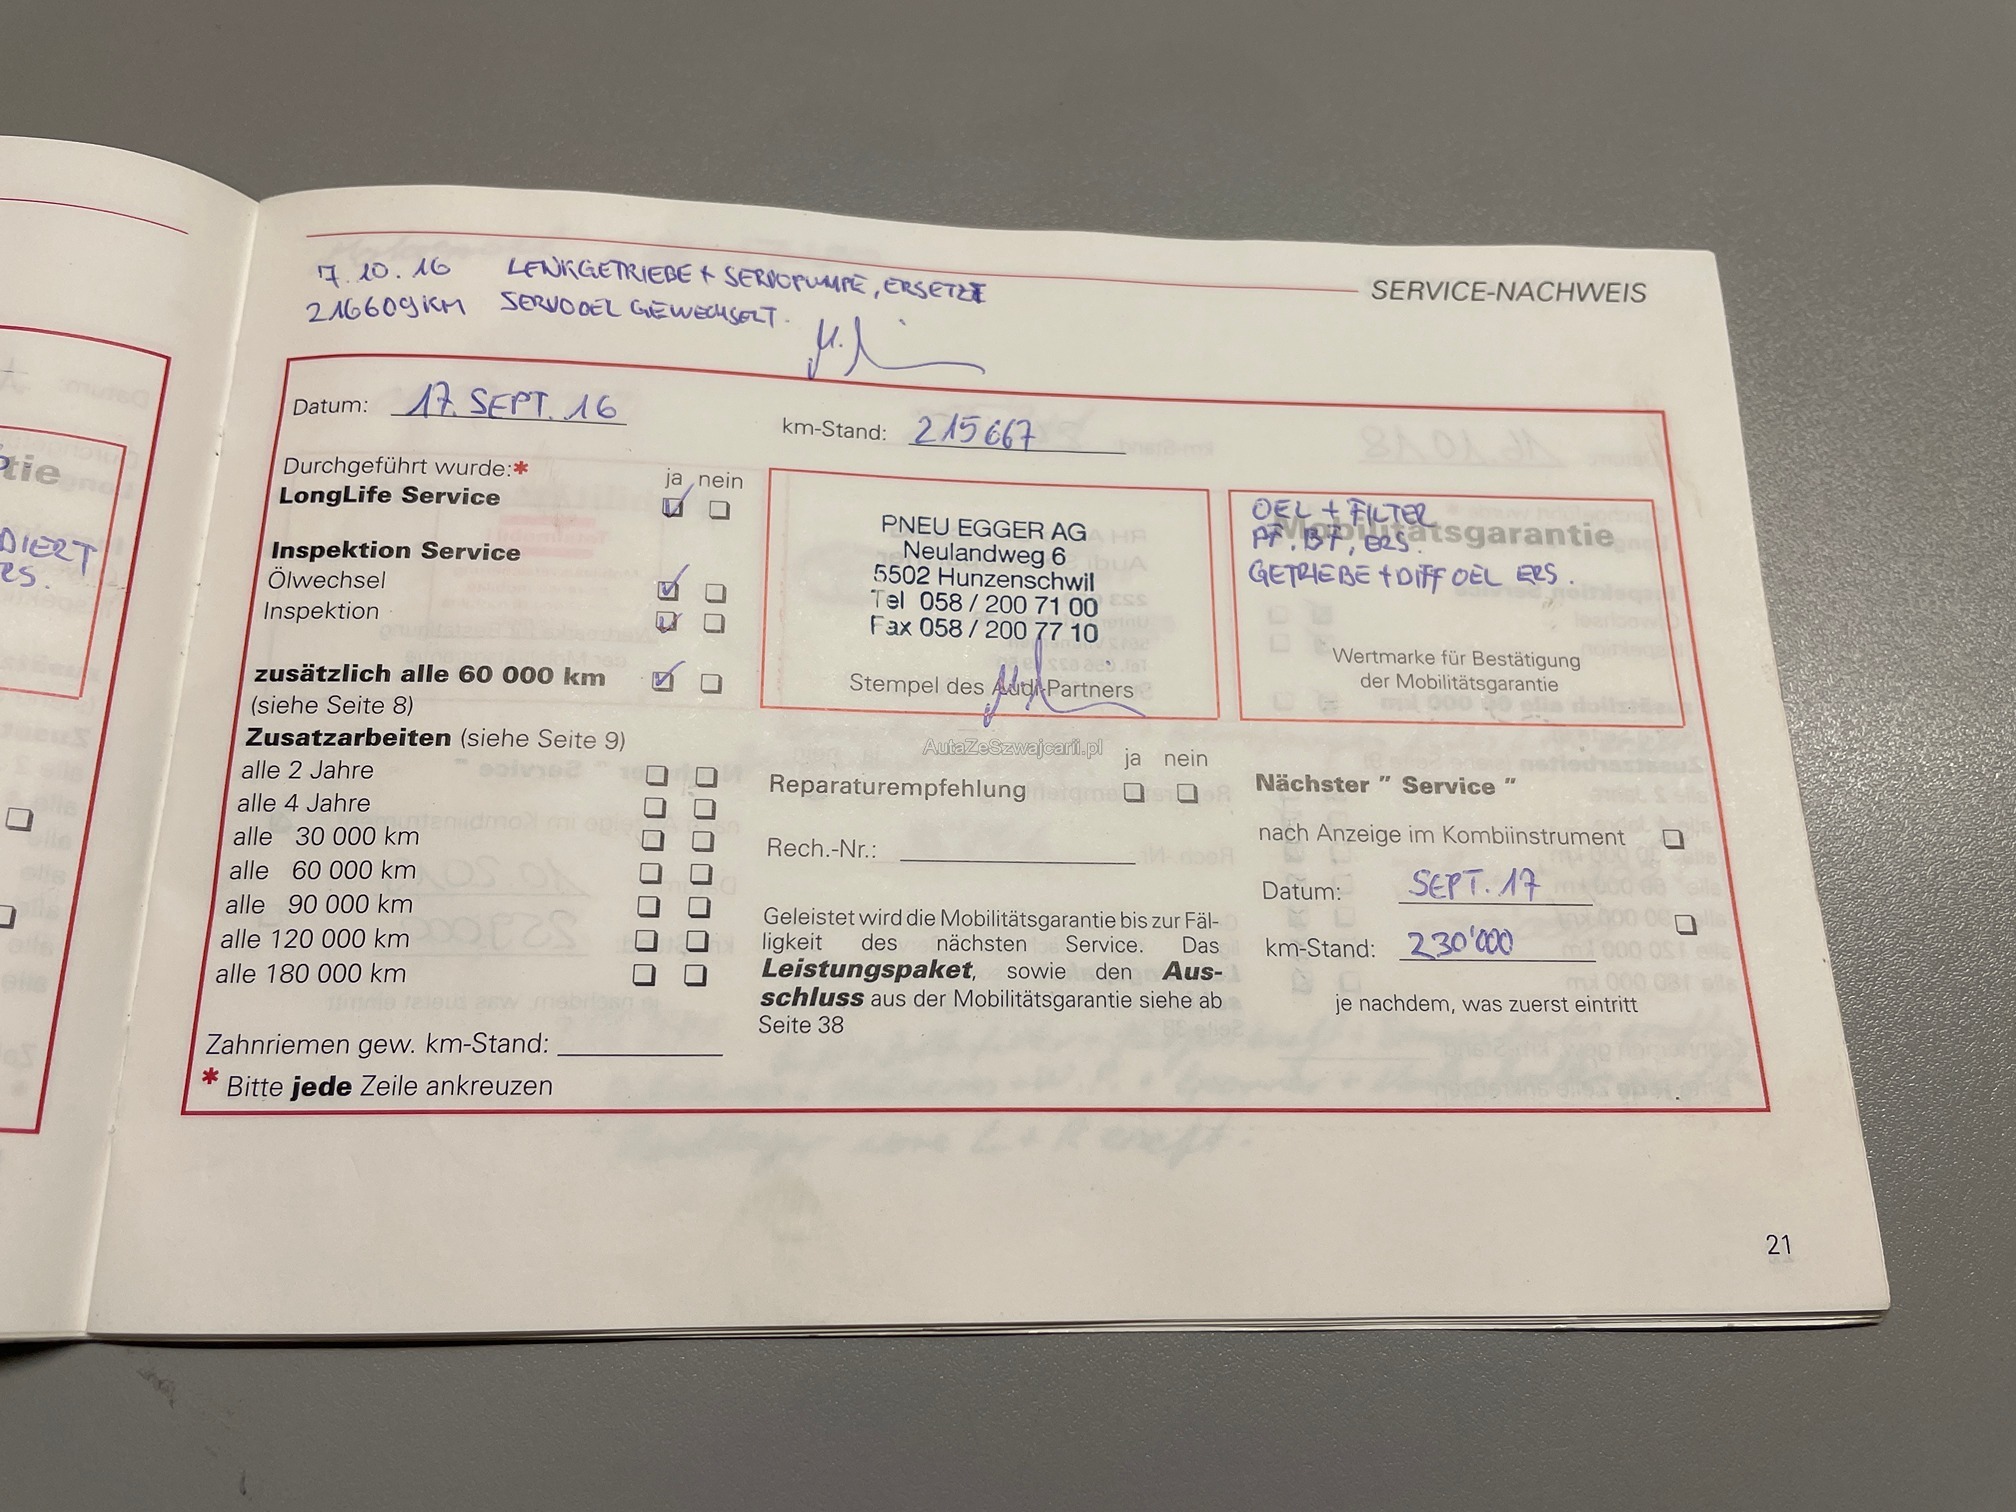 7.10.16 LENKGETRIEBE + SERVOPUMPE, ERSETZT
216609KM SERVOOEL GEWECHSELT.
SERVICE-NACHWEIS
Datum: 17. SEPT. 16
km-Stand: 215667
Durchgeführt wurde:*
ja nein
LongLife Service
Inspektion Service
Ölwechsel
Inspektion
zusätzlich alle 60 000 km
(siehe Seite 8)
Zusatzarbeiten (siehe Seite 9)
alle 2 Jahre
alle 4 Jahre
alle 30 000 km
alle 60 000 km
alle 90 000 km
alle 120 000 km
alle 180 000 km
Zahnriemen gew. km-Stand:
* Bitte jede Zeile ankreuzen
PNEU EGGER AG
Neulandweg 6
5502 Hunzenschwil
Tel 058 / 200 71 00
Fax 058 / 200 77 10
Stempel des Audi-Partners
AutaZeSzwajcarii.pl
ja nein
Reparaturempfehlung
Rech.-Nr.:
Geleistet wird die Mobilitätsgarantie bis zur Fäl-
ligkeit des nächsten Service. Das
Leistungspaket, sowie den Aus-
schluss aus der Mobilitätsgarantie siehe ab
Seite 38
OEL + FILTER
Mobilitätsgarantie
PF, BF, ERS.
GETRIEBE + DIFF OEL ERS.
Wertmarke für Bestätigung
der Mobilitätsgarantie
Nächster " Service "
nach Anzeige im Kombiinstrument
Datum: SEPT. 17
km-Stand: 230'000
je nachdem, was zuerst eintritt
21
tie
DIERT
RS.